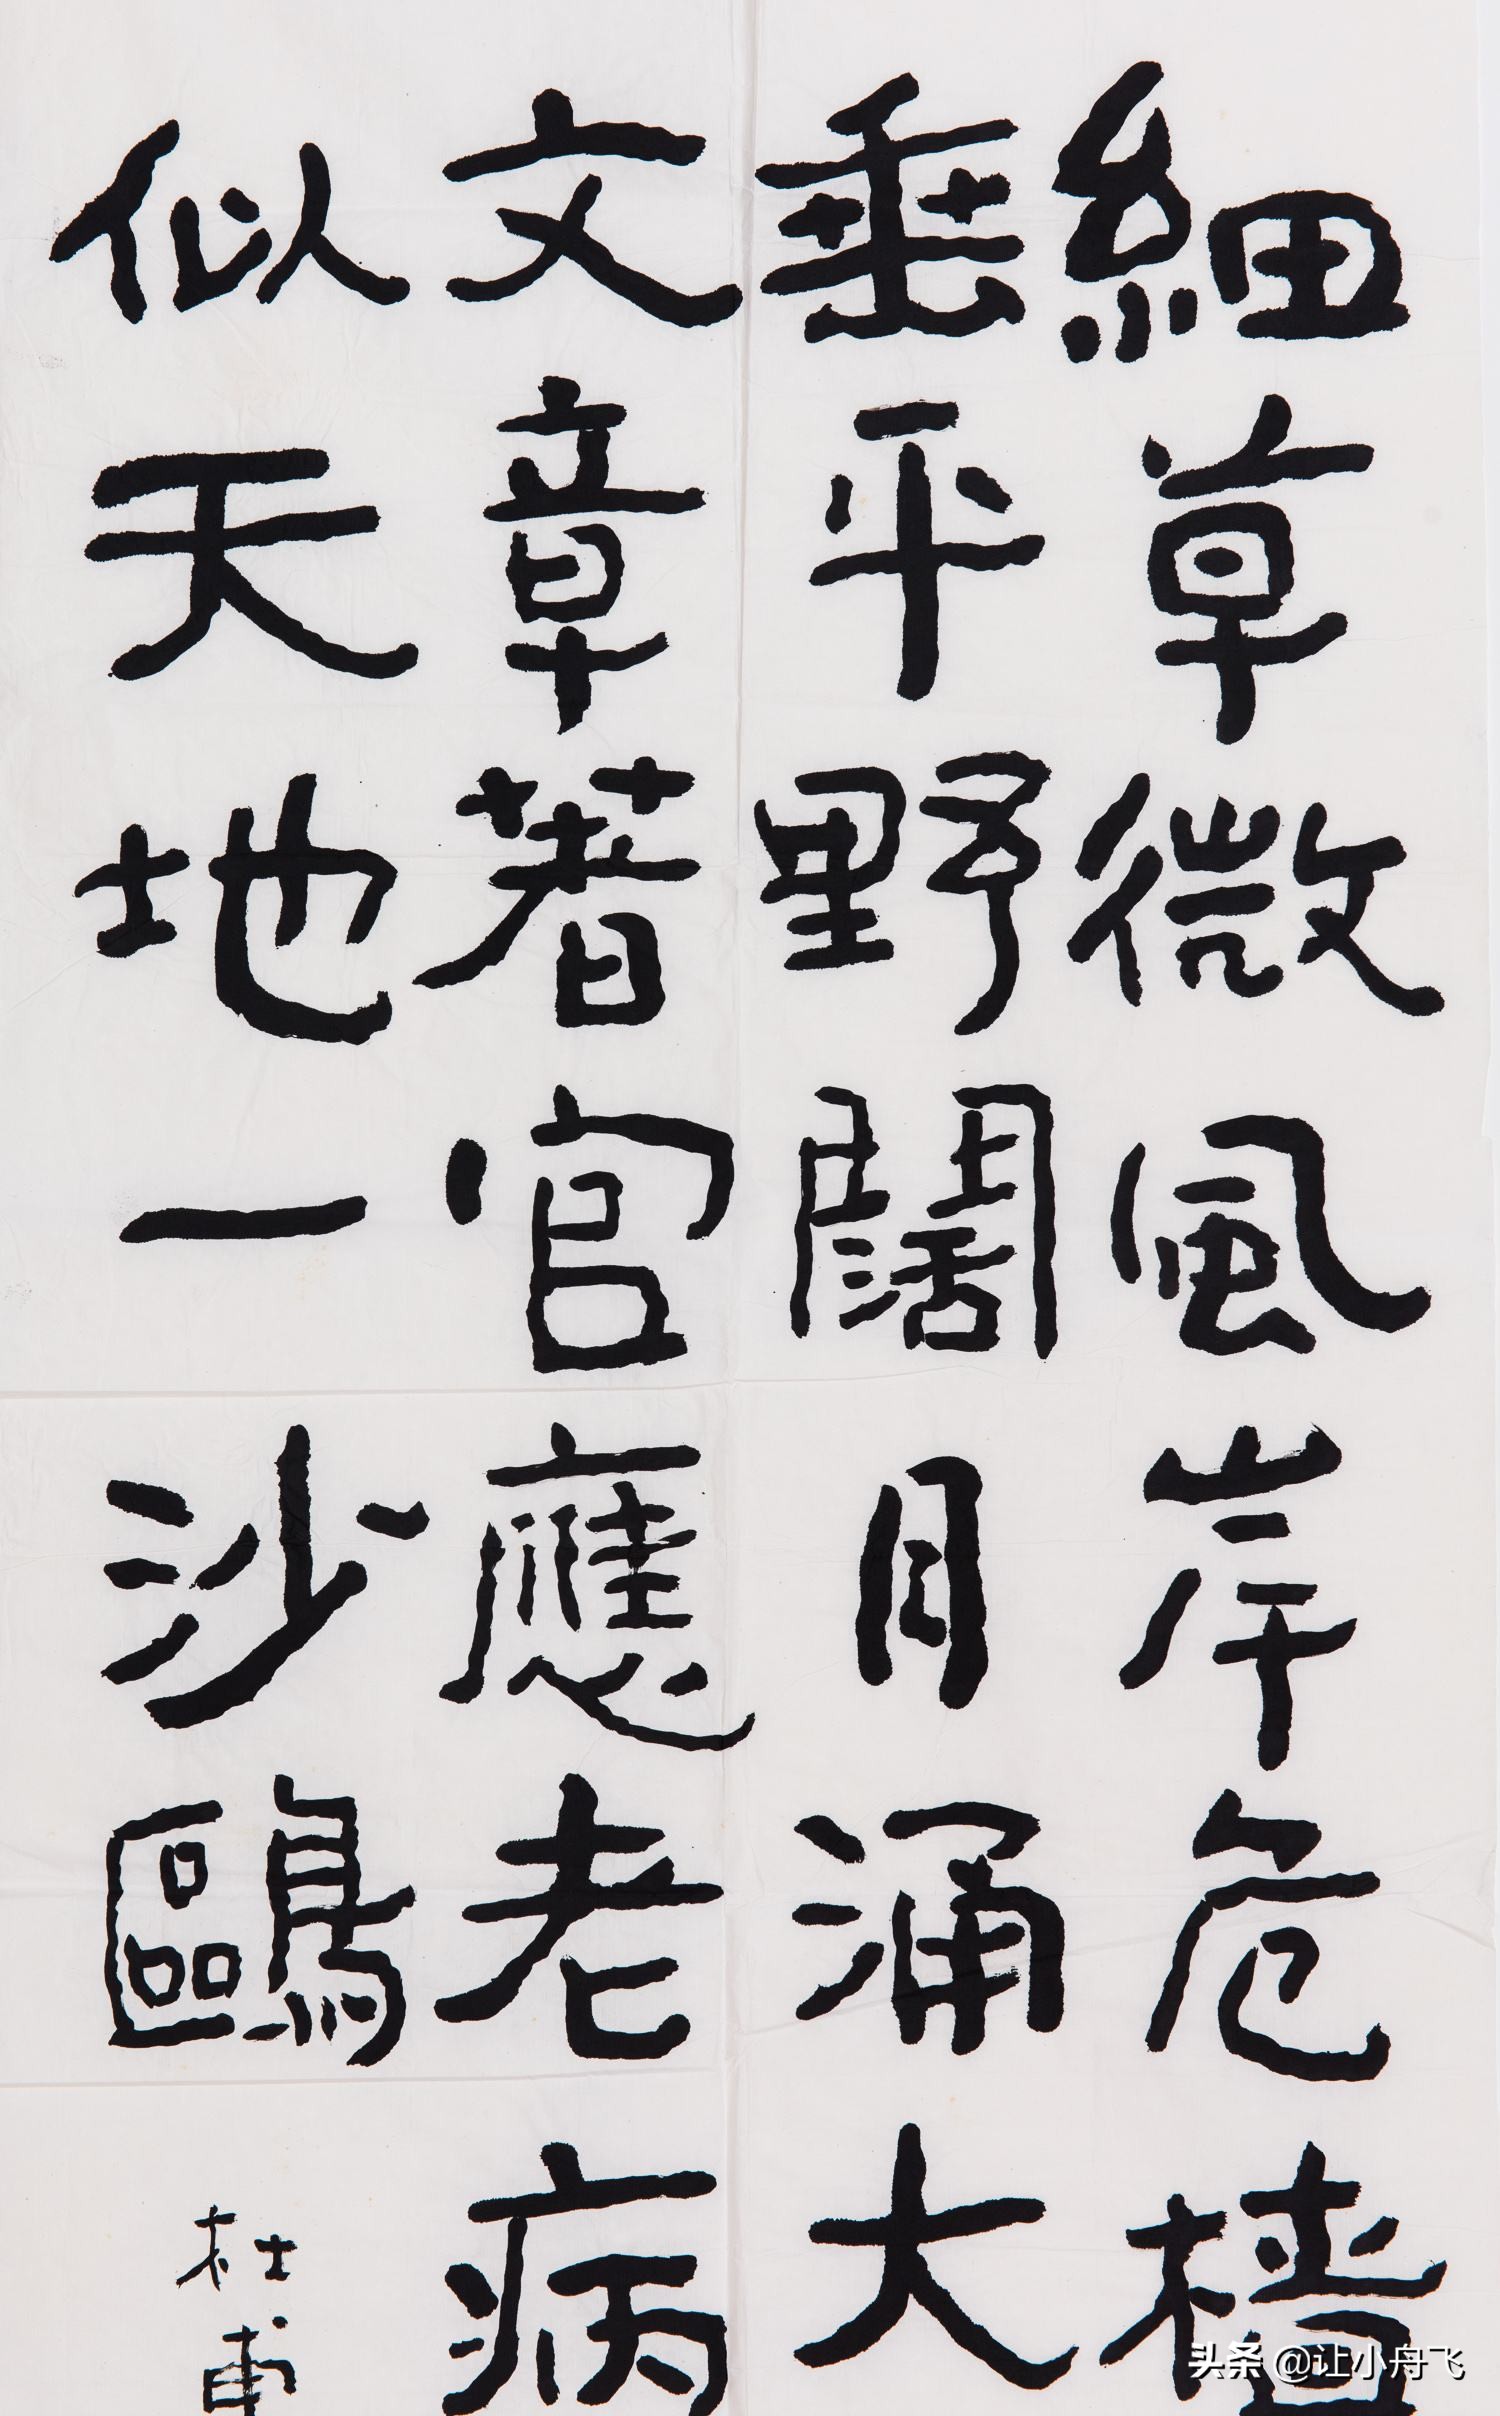 細草微風岸危檣
垂平野闊月涌大
文章著官應老病
似天地一沙鷗
杜甫
头条 @让小舟飞